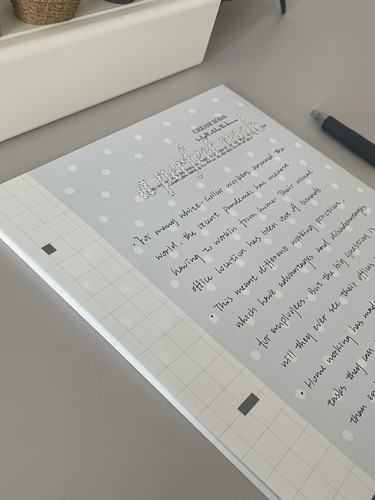 CREAM SODA
a perfect week
• For many white-collar workers around the
world, the recent pandemic has meant
having to workin from home. Their usual
office location has been out of bounds
• This meant different working practices,
which have advantages and disadvantages
for employees. But the big question is
will they ever see their office
• Home working has made
tasks they can
than